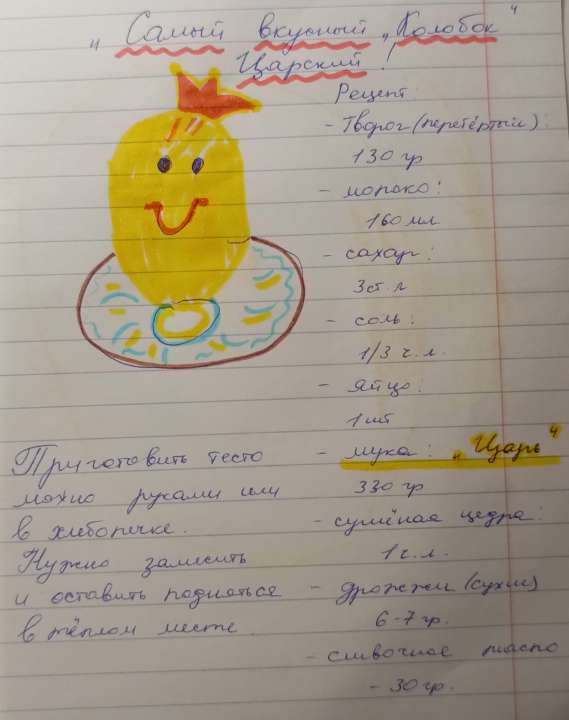 „Самый вкусный „Колобок"
Царский!
Рецепт
- Творог (перетёртый):
130 гр
- молоко:
160 мл
- сахар:
3 ст. л
- соль:
1/3 ч. л.
- яйцо:
1 шт
- мука: „Царь"
330 гр
- сушёная цедра:
1 ч. л.
- дрожжи (сухие)
6-7 гр.
- сливочное масло
- 30 гр.
Приготовить тесто
можно руками или
в хлебопечке.
Нужно замесить
и оставить подняться
в тёплом месте.